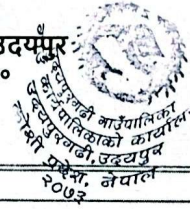 उदयपुर
०
उदयपुरगढी गाउँपालिका
गाउँपालिकाको कार्यालय
उदयपुरगढी, उदयपुर
कोशी प्रदेश, नेपाल
२०७३